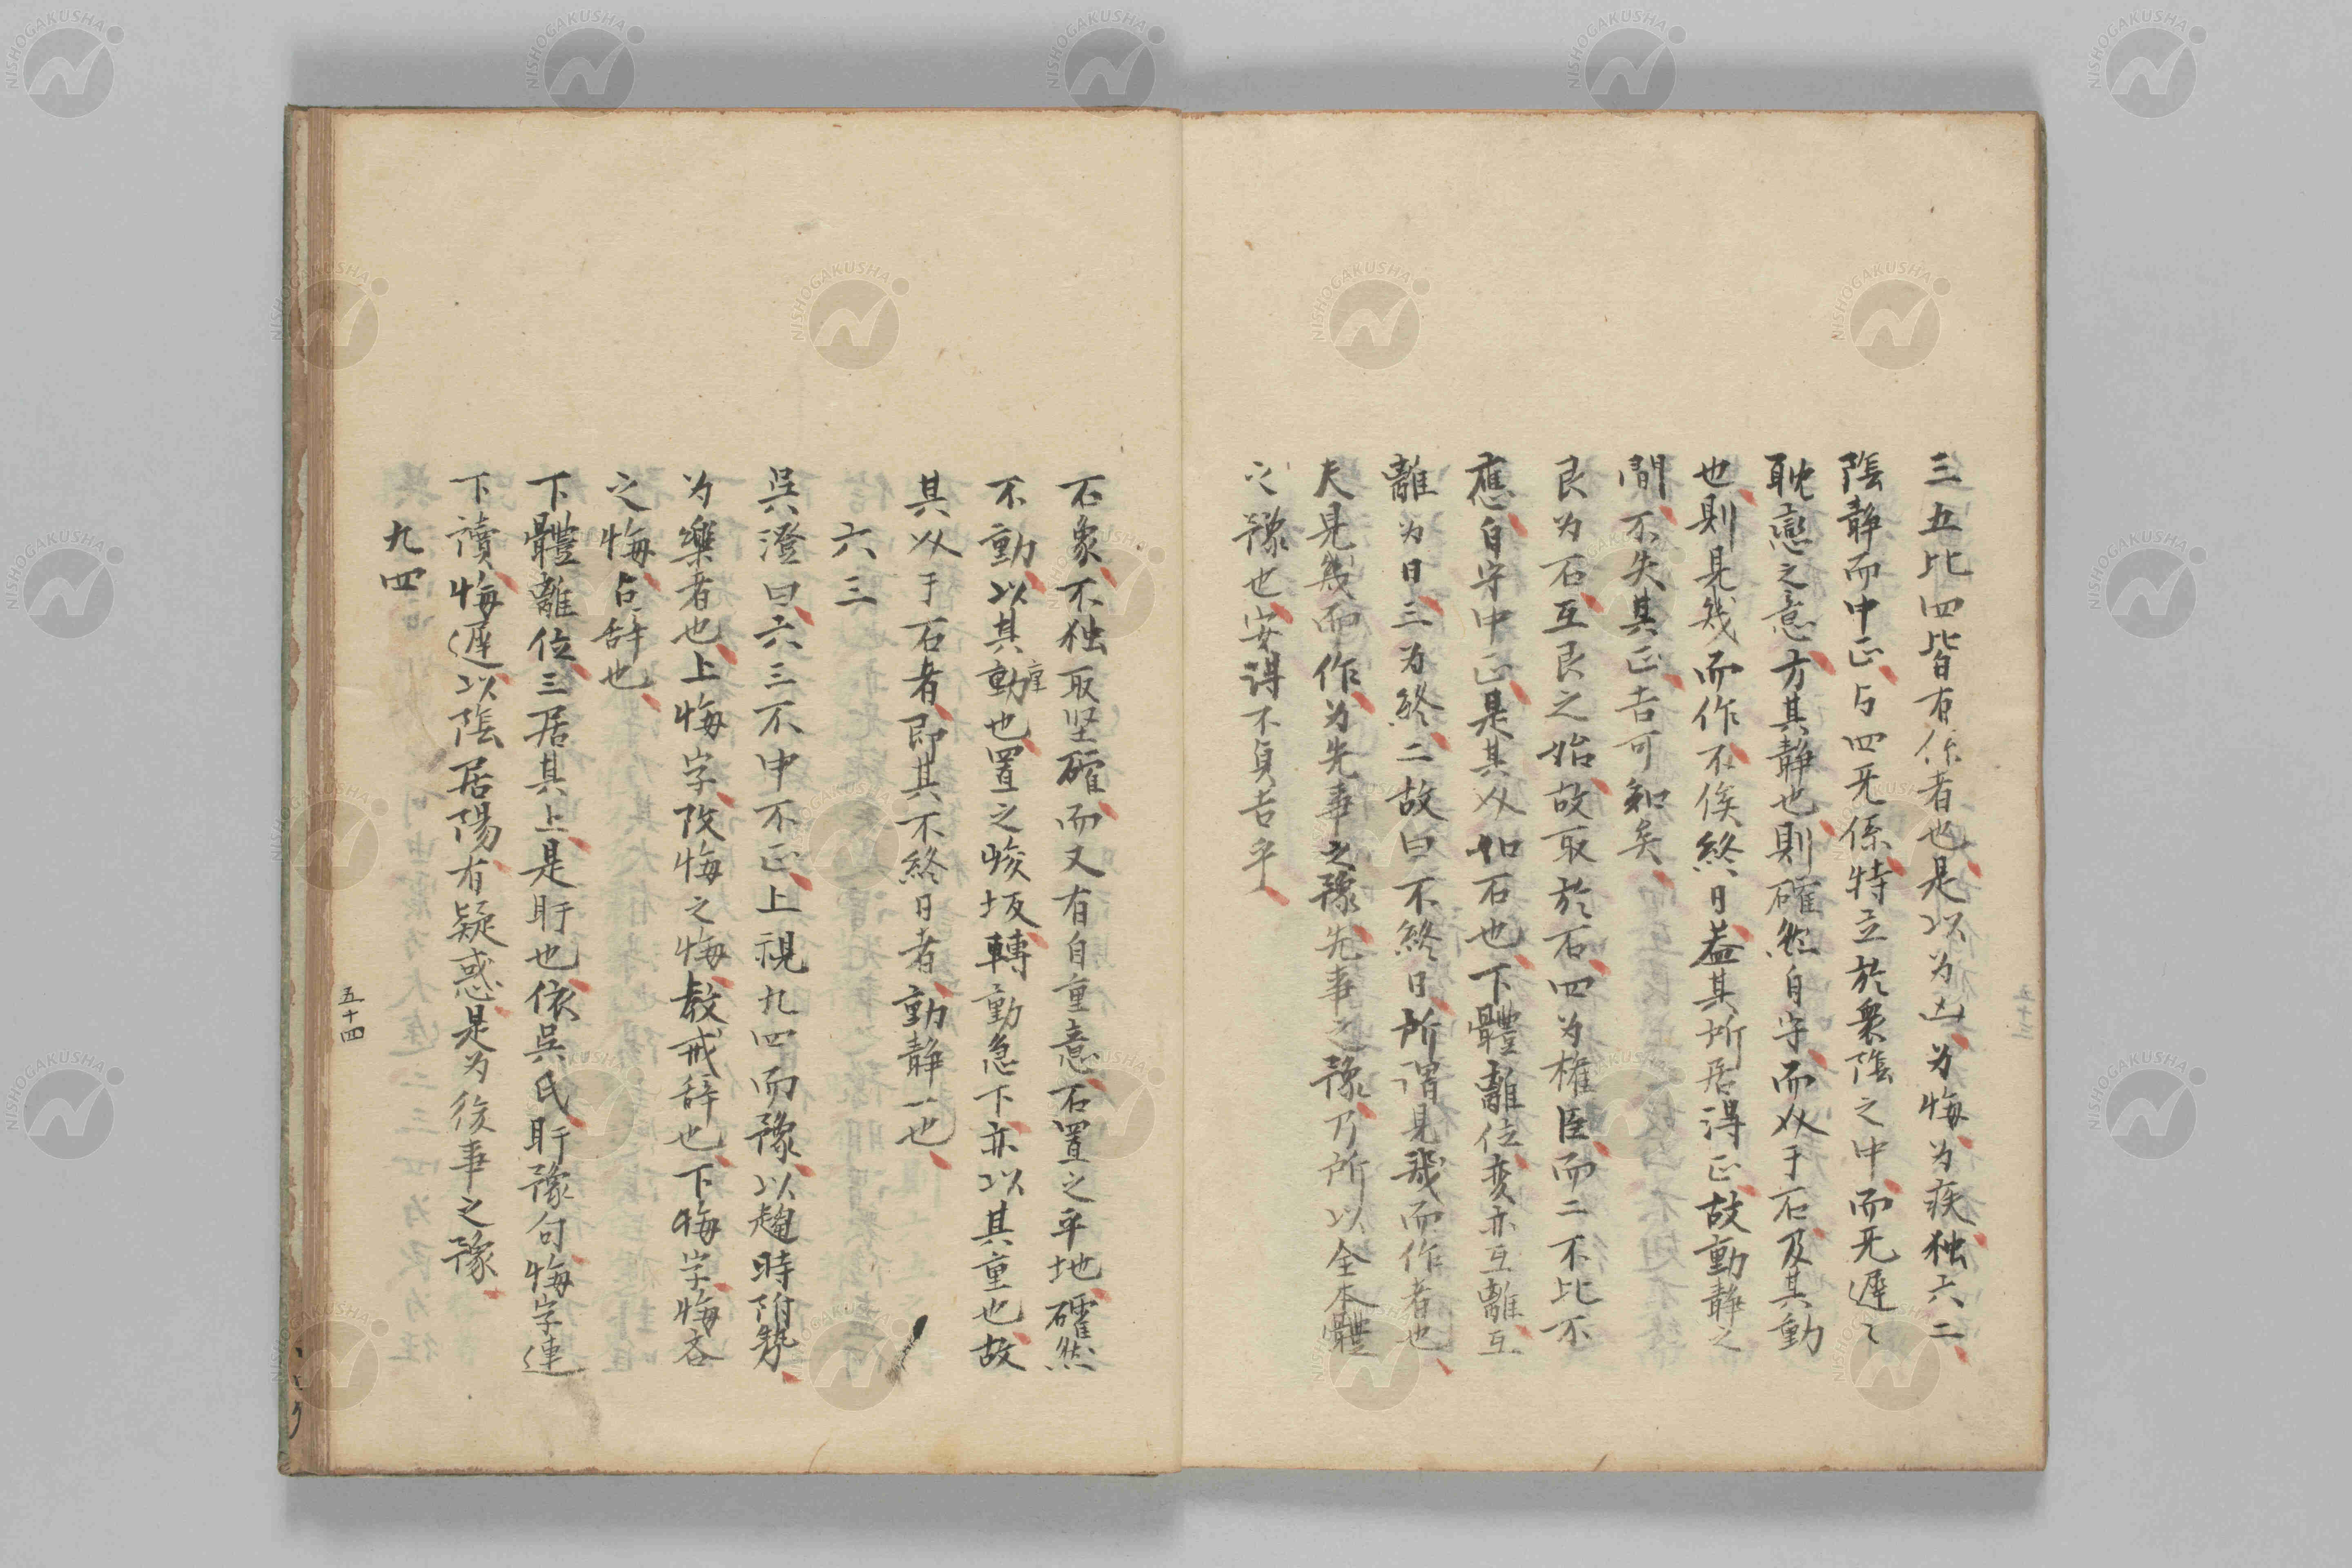 三五比四皆有係者也是以为凶为悔为疾独六二
陰静而中正与四无係特立於衆陰之中而无遲〻
耽戀之意方其静也則確然自守而介于石及其動
也則見幾而作不俟終日葢其所居得正故動静之
間不失其正吉可知矣
艮为石互艮之始故取於石四为權臣而二不比不
應自守中正是其介如石也下體離位変亦互離互
離为日三为終二故曰不終日所謂見幾而作者也
夫見幾而作为先事之豫先事之豫乃所以全本體
之豫也安得不貞吉乎
石象不独取坚確而又有自重意石置之平地確然
不動以其重也置之峻坂轉動急下亦以其重也故
其介于石者即其不終日者動静一也
六三
呉澄曰六三不中不正上視九四而豫以趨時附勢
为樂者也上悔字改悔之悔教戒辞也下悔字悔吝
之悔占辞也
下體離位三居其上是盱也依呉氏盱豫句悔字連
下讀悔遲以陰居陽有疑惑是为後事之豫
九四
五十四
NISHOGAKUSHA